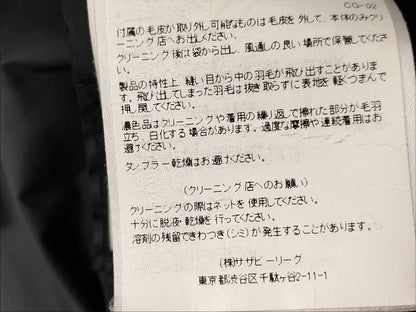 CG-02
付属の毛皮が取り外し可能なものは毛皮を外して、本体のみクリ
ーニング店へお出しください。
クリーニング後は袋から出し、風通しの良い場所で保管してくださ
い。
製品の特性上、縫い目から中の羽毛が飛び出すことがありま
す。飛び出てしまった羽毛は抜き取らずに表地を軽くつまんで
押し戻してください。
濃色品はクリーニングや着用の繰り返しで擦れた部分が毛羽
立ち、白化する場合があります。過度な摩擦や連続着用はお
避けください。
タンブラー乾燥はお避けください。
(クリーニング店へのお願い)
クリーニングの際はネットを使用してください。
十分に脱液・乾燥を行ってください。
溶剤の残留できわつき(シミ)が発生することがあります。
(株)サザビーリーグ
東京都渋谷区千駄ヶ谷2-11-1